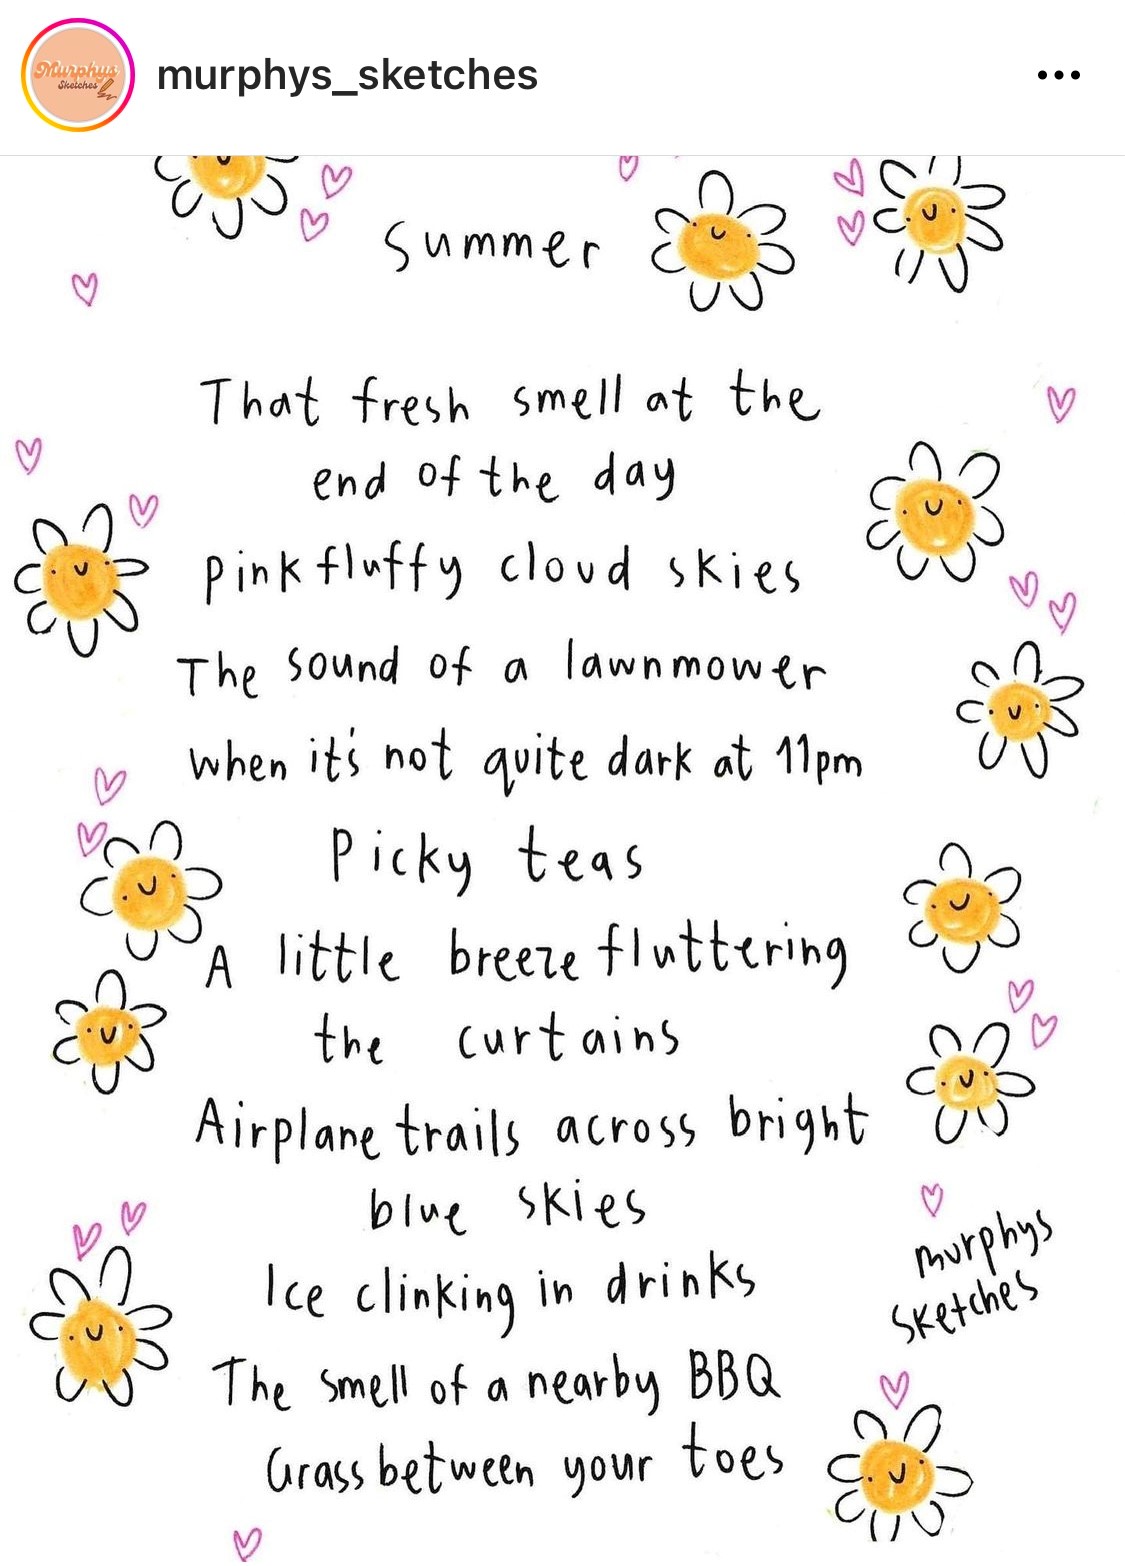 Murphys
Sketches
murphys_sketches
Summer
That fresh smell at the
end of the day
Pink fluffy cloud skies
The sound of a lawnmower
when it's not quite dark at 11pm
Picky teas
A little breeze fluttering
the curtains
Airplane trails across bright
blue skies
Ice clinking in drinks
The smell of a nearby BBQ
Grass between your toes
murphys
sketches